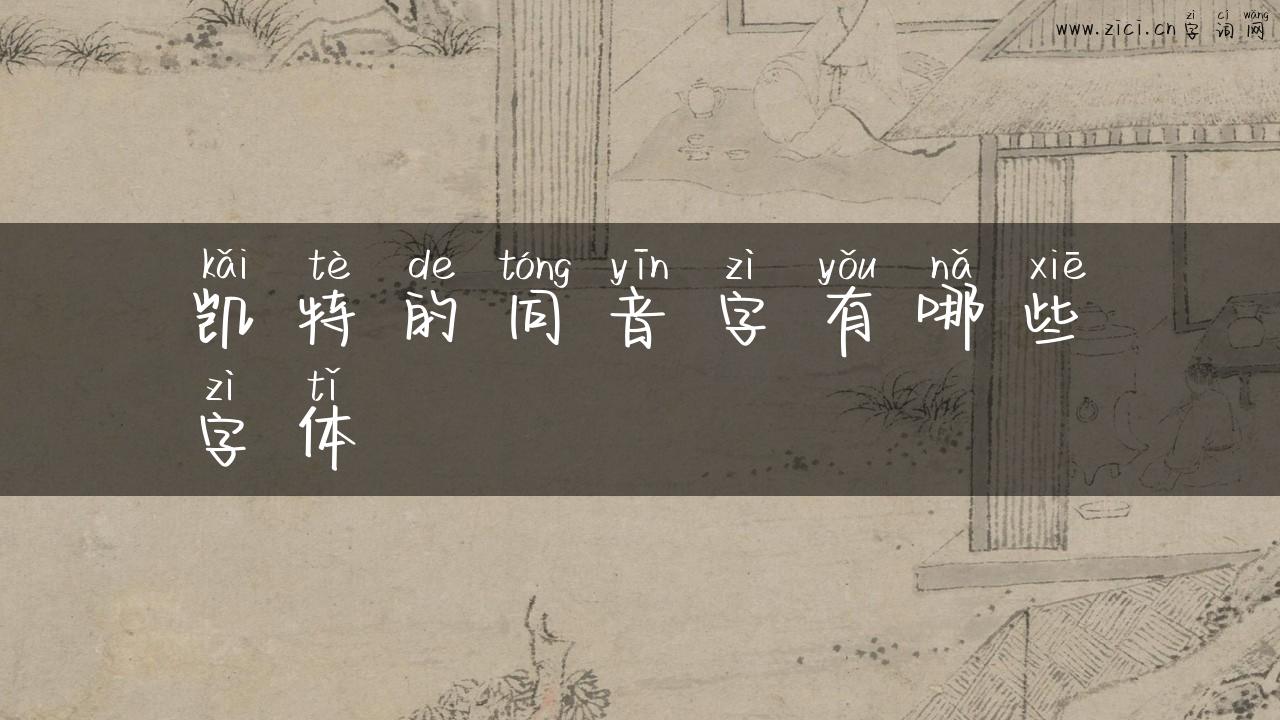 zì cí wǎng
www.zici.cn 字词网
kǎi tè de tóng yīn zì yǒu nǎ xiē
凯特的同音字有哪些
zì tǐ
字体